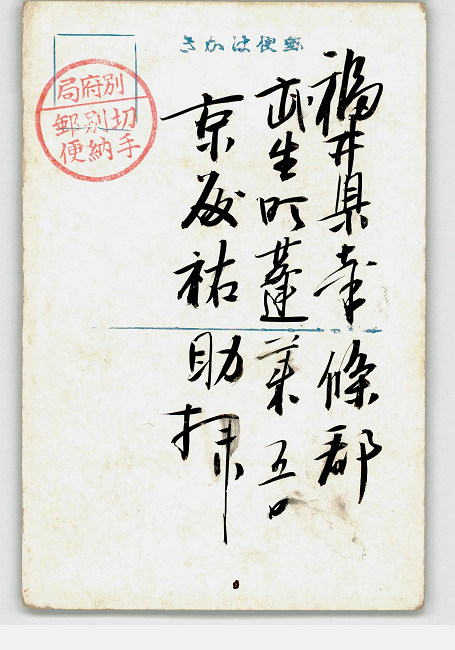 郵便はかき
福井県南條郡
武生町蓬莱五
京 祐助様
別府局
切手
別納
郵便